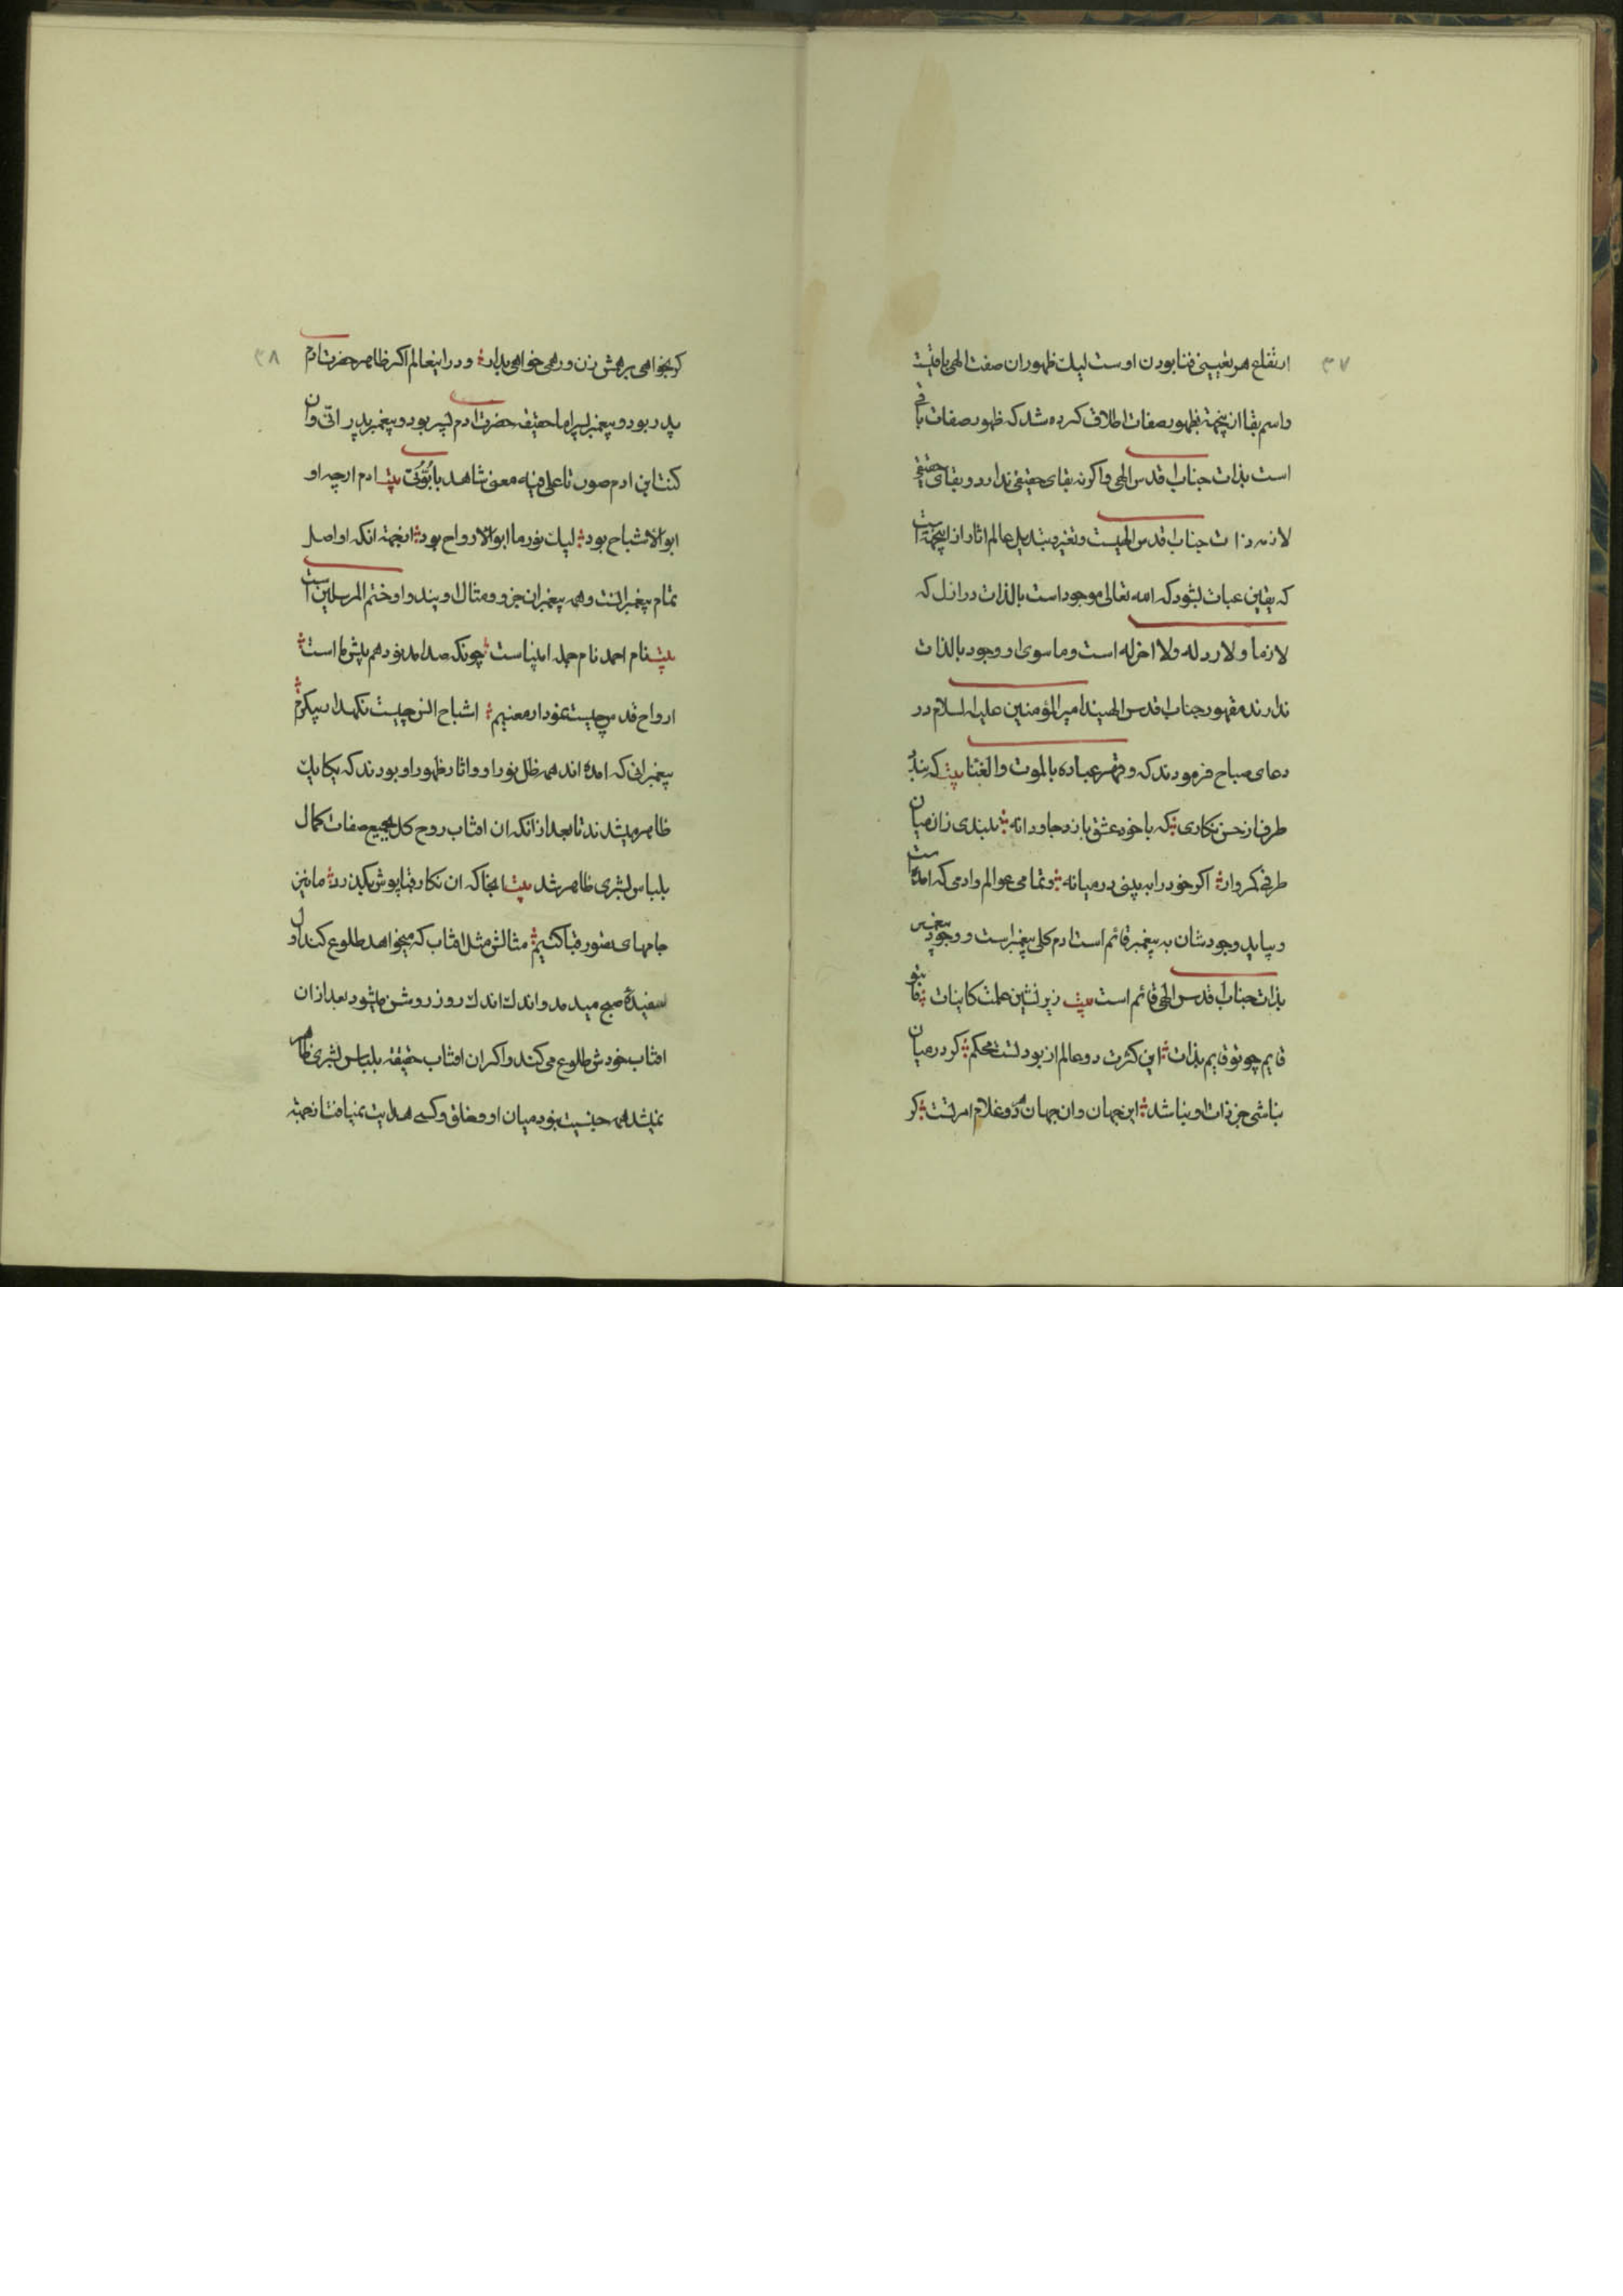 ٣٧
ارتفاع هر تعیینی فنا بودن اوست لیک ظهور ان صفت الهی باقیست
واسم بقا ازینجهة بظهور صفات اطلاق کرده شد که ظهور صفات باقی
است بذات جناب اقدس الهی واکرنه بقای حقیقی ندارد و بقای حقیقی
لازمه ذات جناب اقدس الهیست وتغیر وتبدیل عالم اثار از اینجهة است
که یقین عباث بشود که الله تعالی موجود است بالذات در ازل که
لازما ولا رد له ولا اخر له است وما سوی او وجود بالذات
ندارند مقهور جناب اقدس الهیند امیر المؤمنین علیه السلام در
دعای صباح فرمودند که وقهر عباده بالموت والفنا بیت که بندد
طرف از حسن نکاری که با خود عشق بازد جاودانه نبندی زان میان
طرفی کمروار اکر خود را ببینی در میانه وتمامی عوالم وادمی که امده است
وبیاید وجودشان به پیغمبر قائم است ادم کلی پیغمبر است ووجود پیغمبر
بذات جناب اقدس الهی قائم است بیت زیر نشین علمت کاینات ما بتو
قایم چو تو قایم بذات این کثرت دو عالم از بود تست محکم کر در میان
نباشی جز ذات او نباشد این جهان وان جهان هر دو غلام امر تست کر
٣٨
کر بخواهی برهمش زن ور همی خواهی بدار ودر اینعالم اکر ظاهر حضرت ادم
پدر بود وپیغمبر پسر اما حقیقت حضرت ادم پسر بود وپیغمبر پدر انی وان
کنت ابن ادم صورة فلی فیه معنی شاهد بابوتی بیت ادم ارچه او
ابو الاشباح بود لیک نور ما ابو الارواح بود ازینجهة انکه او اصل
تمام پیغمبرانست وهمه پیغمبران جزو ومثال اویند واو ختم المرسلین است
بیت نام احمد نام جمله انبیاست چونکه صد امد نود هم پیش ما است
ارواح قدس چیست نمودار معنیم اشباح انس چیست نکهدار پیکرم
پیغمبرانی که امده اند همه ظل نور او واثار ظهور او بودند که یکایک
ظاهر میشدند تا بعد از انکه ان افتاب روح کل بجمیع صفات کمال
بلباس بشری ظاهر شد بیت انجا که ان نکار قباپوش بکذرد ما نیز
جامهای تصور قبا کنیم مثالش مثل افتاب که میخواهد طلوع کند اول
سفیدۀ صبح میدمد واندک اندک روز روشن میشود بعد از ان
افتاب خودش طلوع می کند واکر ان افتاب حقیقة بلباس بشری ظاهر
نمیشد همه جنسیت نبود میان او وخلق وکسی هدایت نمییافت ازنجهة